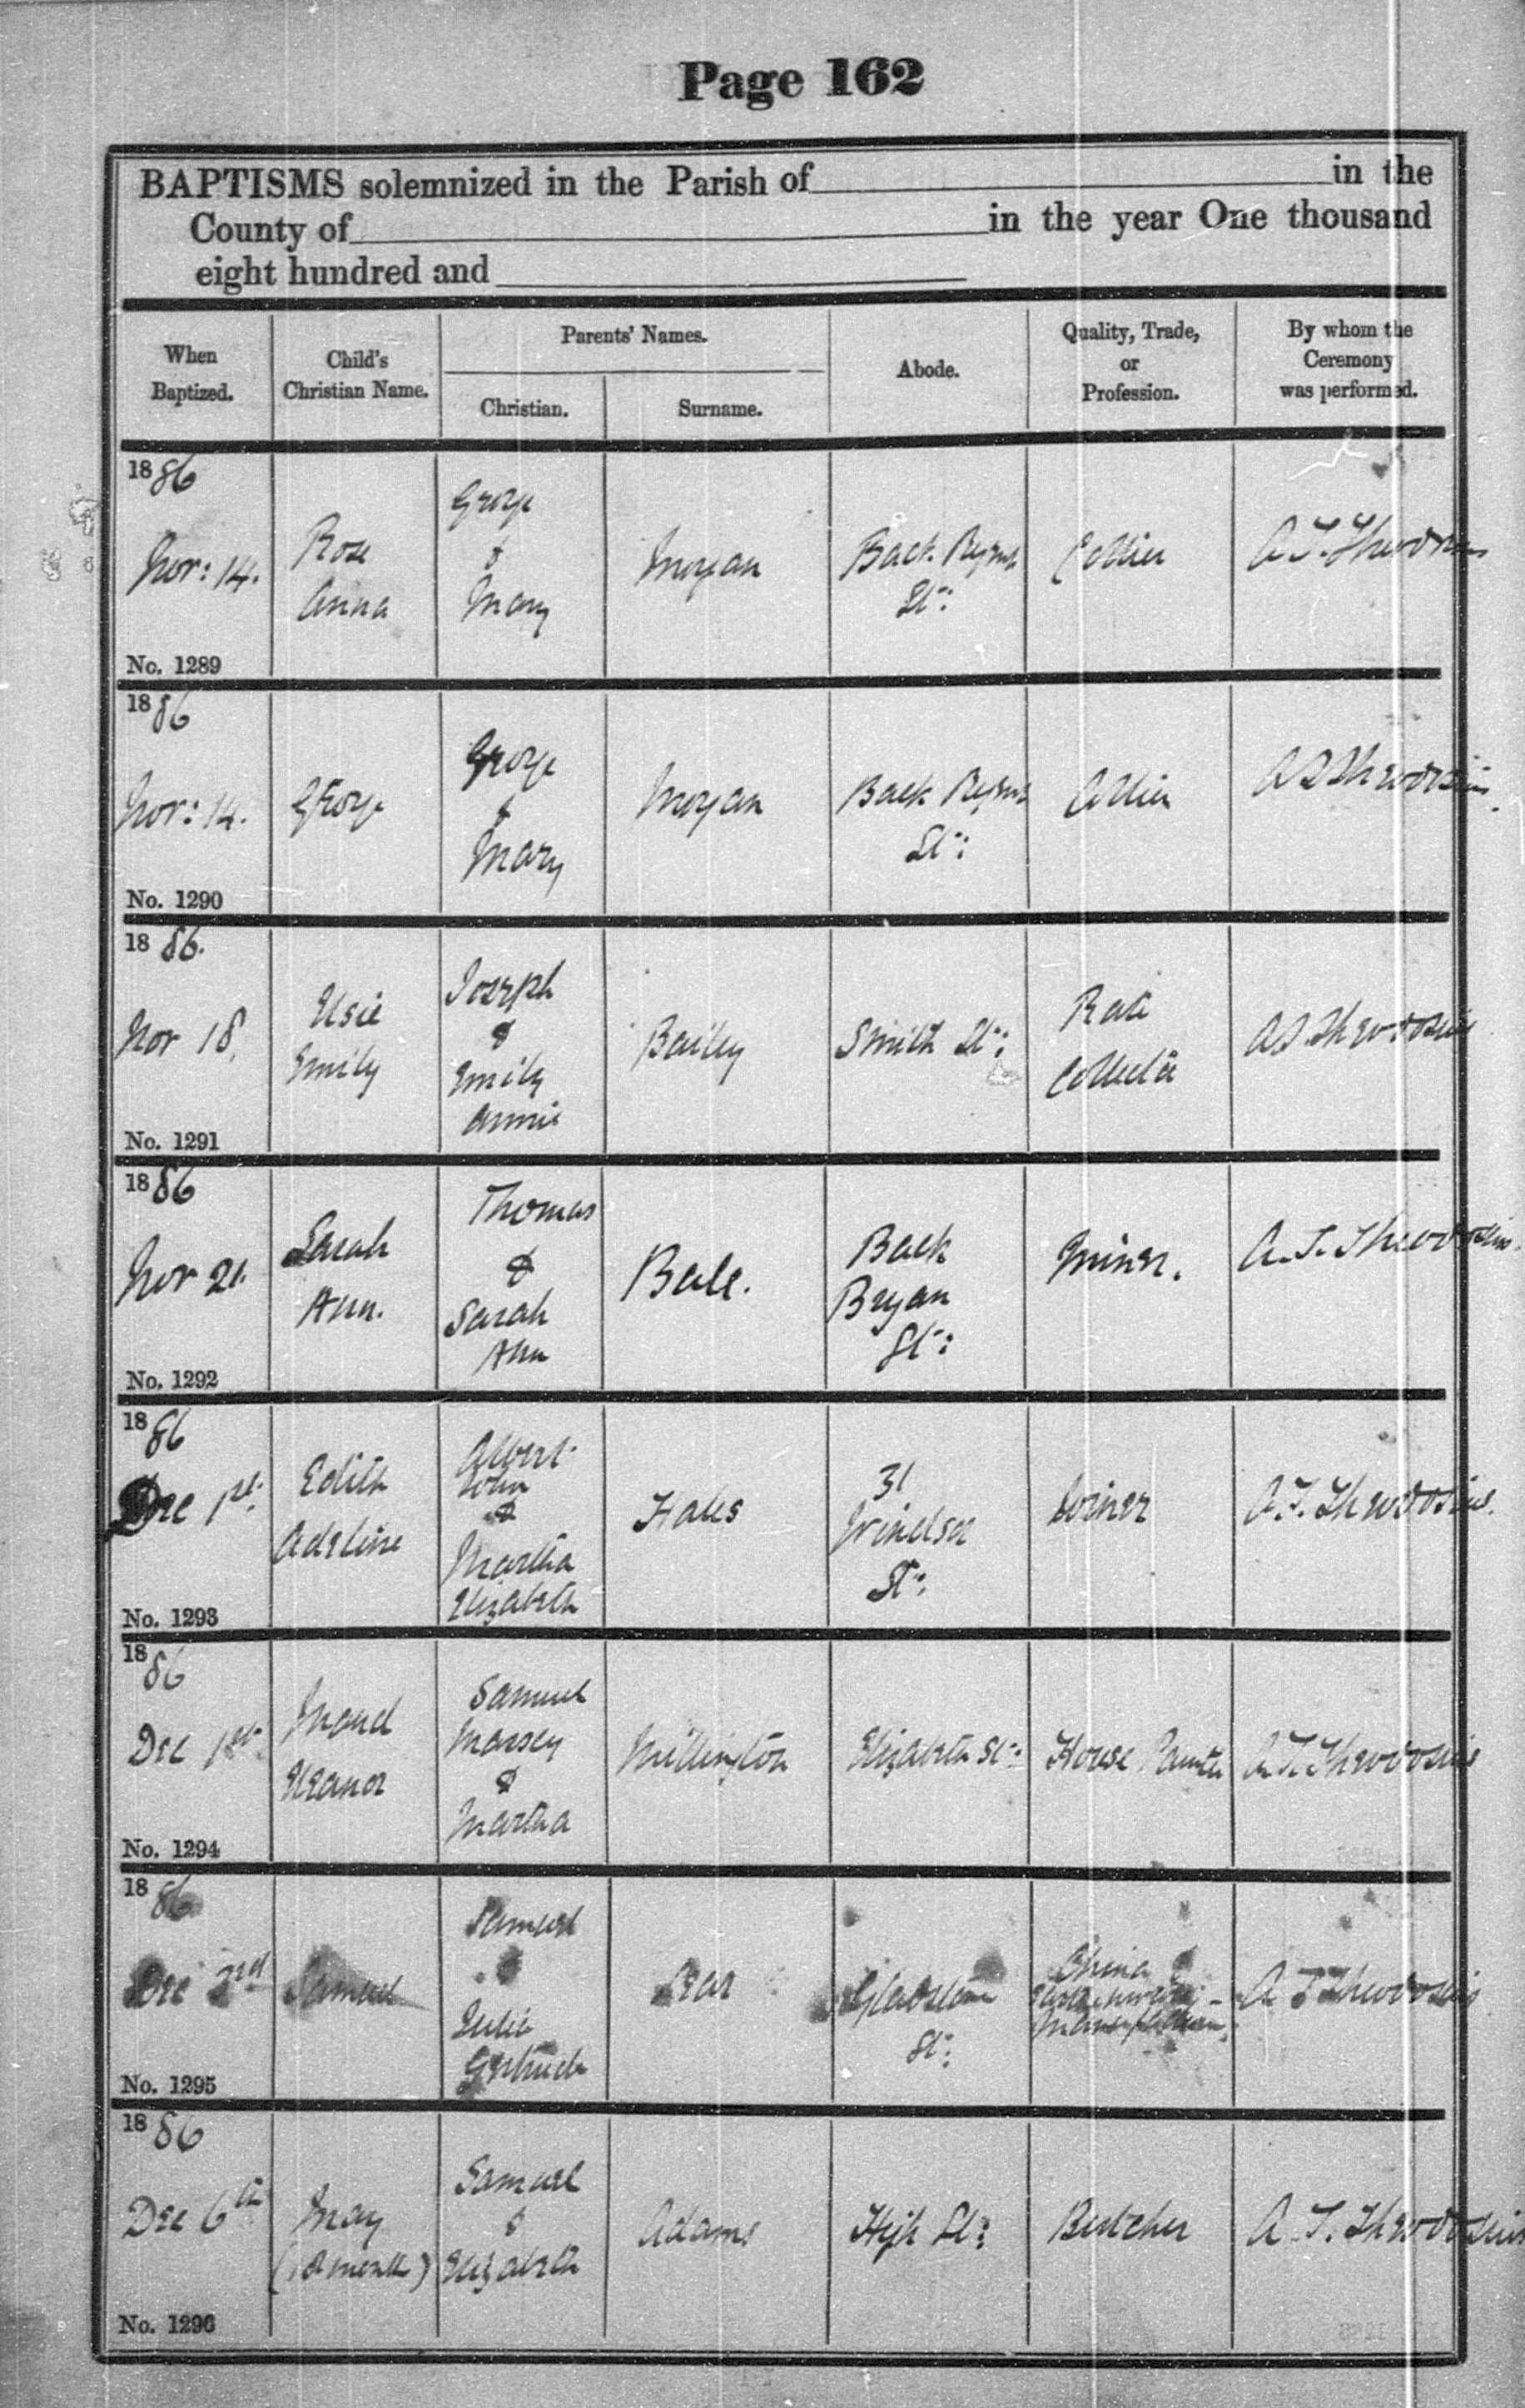 Page 162
BAPTISMS solemnized in the Parish of in the
County of in the year One thousand
eight hundred and
When
Baptized.
Child's
Christian Name.
Parents' Names.
Christian.
Surname.
Abode.
Quality, Trade,
or
Profession.
By whom the
Ceremony
was performed.
1886
Nov: 14.
Rose
Anna
George
&
Mary
Morgan
Back
St:
Collier
A. T. Theodosius
No. 1289
1886
Nov: 14.
George
George
&
Mary
Morgan
Back
St:
Collier
A T Theodosius.
No. 1290
1886.
Nov 18.
Elsie
Emily
Joseph
&
Emily
Annie
Bailey
Smith St:
Rate
Collector
A T. Theodosius
No. 1291
1886
Nov 21.
Sarah
Ann.
Thomas
&
Sarah
Ann
Ball.
Back
Bryan
St:
Miner.
A. T. Theodosius.
No. 1292
1886
Dec 1st:
Edith
Adeline
Albert
John
&
Martha
Elizabeth
Hales
31
Windsor
St:
Joiner
A. T. Theodosius.
No. 1293
1886
Dec 1st
Maud
Eleanor
Samuel
Massey
&
Martha
Millington
Elizabeth St:
House Painter
A. T. Theodosius
No. 1294
1886
Dec 2nd
Samuel
Samuel
&
Julia
Gertrude
Lear
Gladstone
St:
China &
Earthenware
Manufacturer.
A T Theodosius
No. 1295
1886
Dec 6th
May
Samuel
&
Elizabeth
Adams
High St:
Butcher
A. T. Theodosius
No. 1296